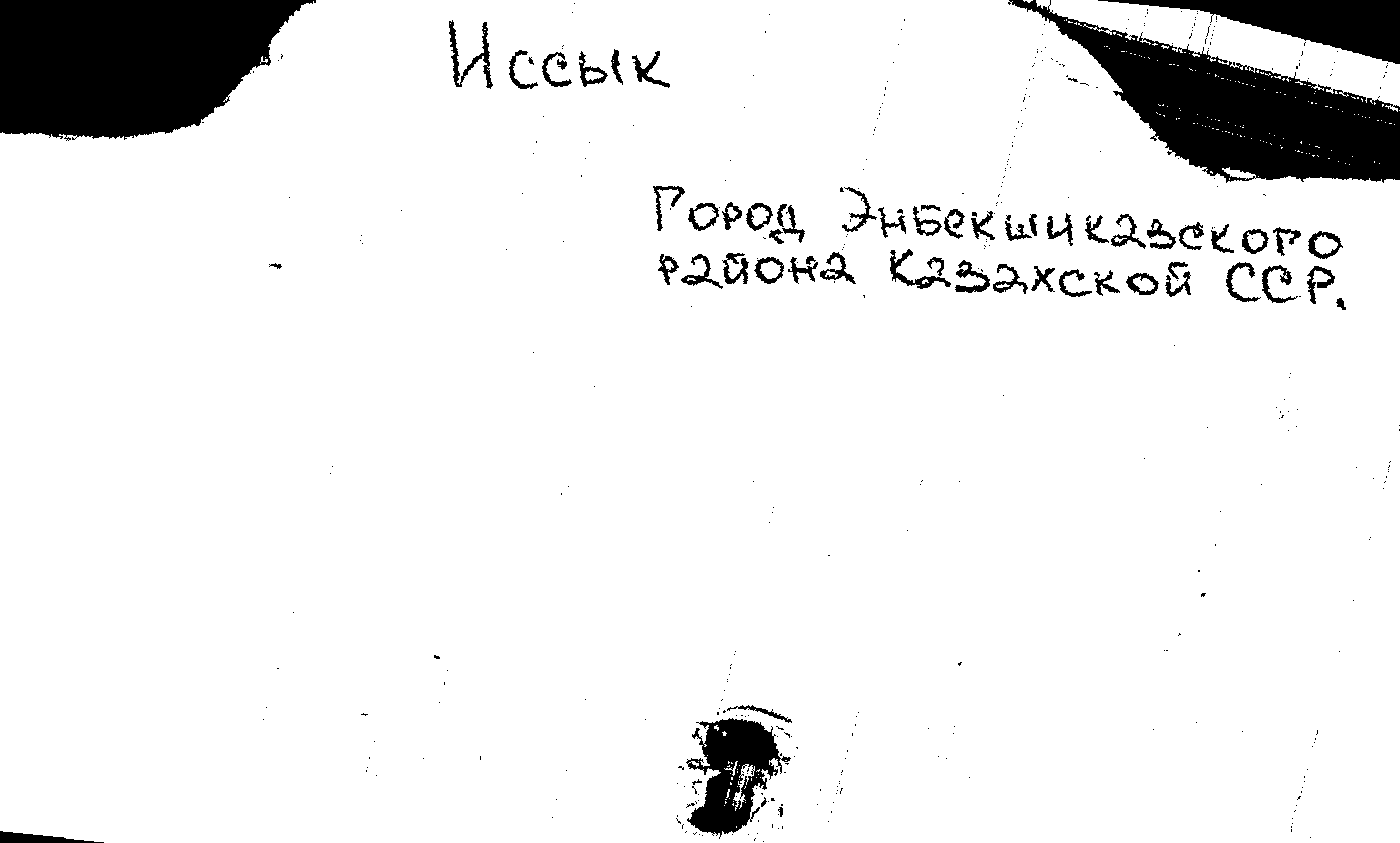 Иссык
Город Энбекшиказского
района Казахской ССР.